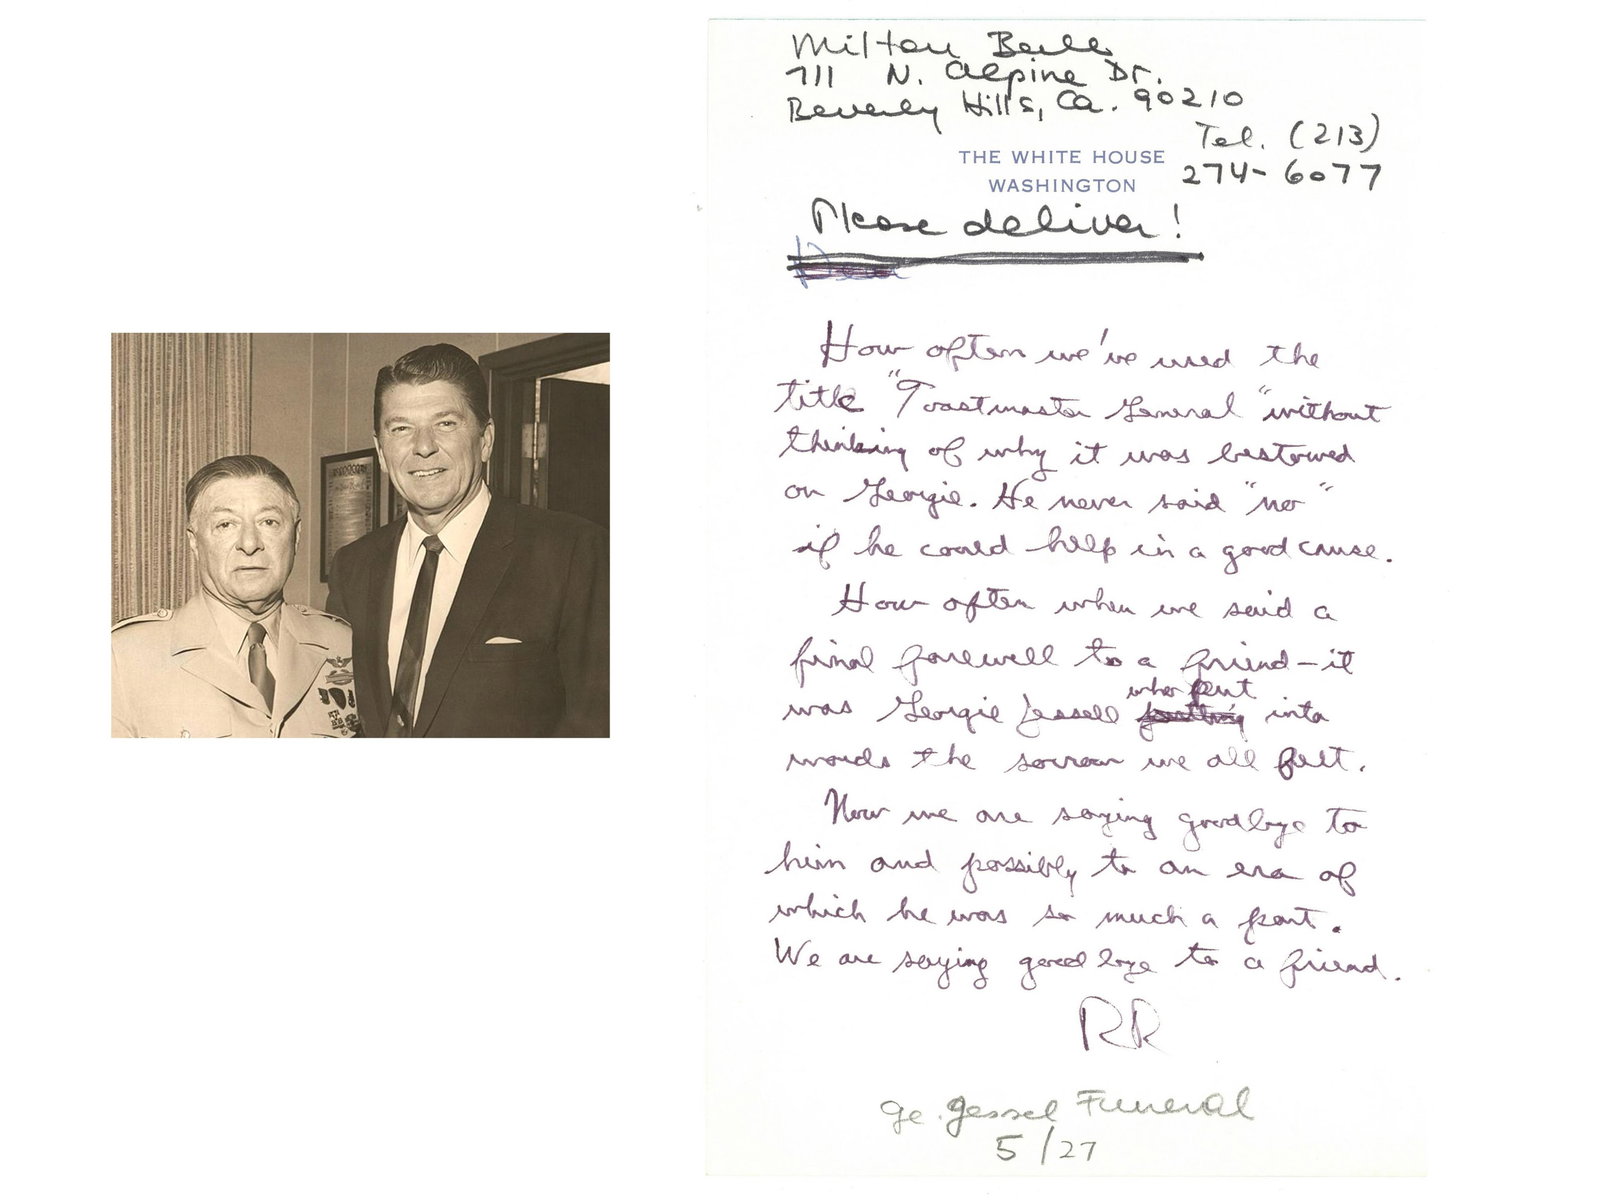 Milton Berle
711 N. Alpine Dr.
Beverly Hills, Ca. 90210
Tel. (213)
274-6077
THE WHITE HOUSE
WASHINGTON
Please deliver!
Dear
How often we've used the
title "Toastmaster General" without
thinking of why it was bestowed
on Georgie. He never said "no"
if he could help in a good cause.
How often when we said a
final farewell to a friend—it
was Georgie Jessell who put into
words the sorrow we all felt.
Now we are saying goodbye to
him and possibly to an era of
which he was so much a part.
We are saying good bye to a friend.
RR
Ge. Jessel Funeral
5/27